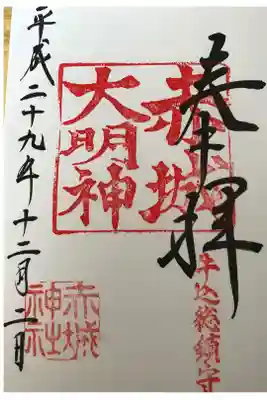 奉拝
牛込総鎮守
赤城
大明神
平成二十九年十二月二日
赤城
神社